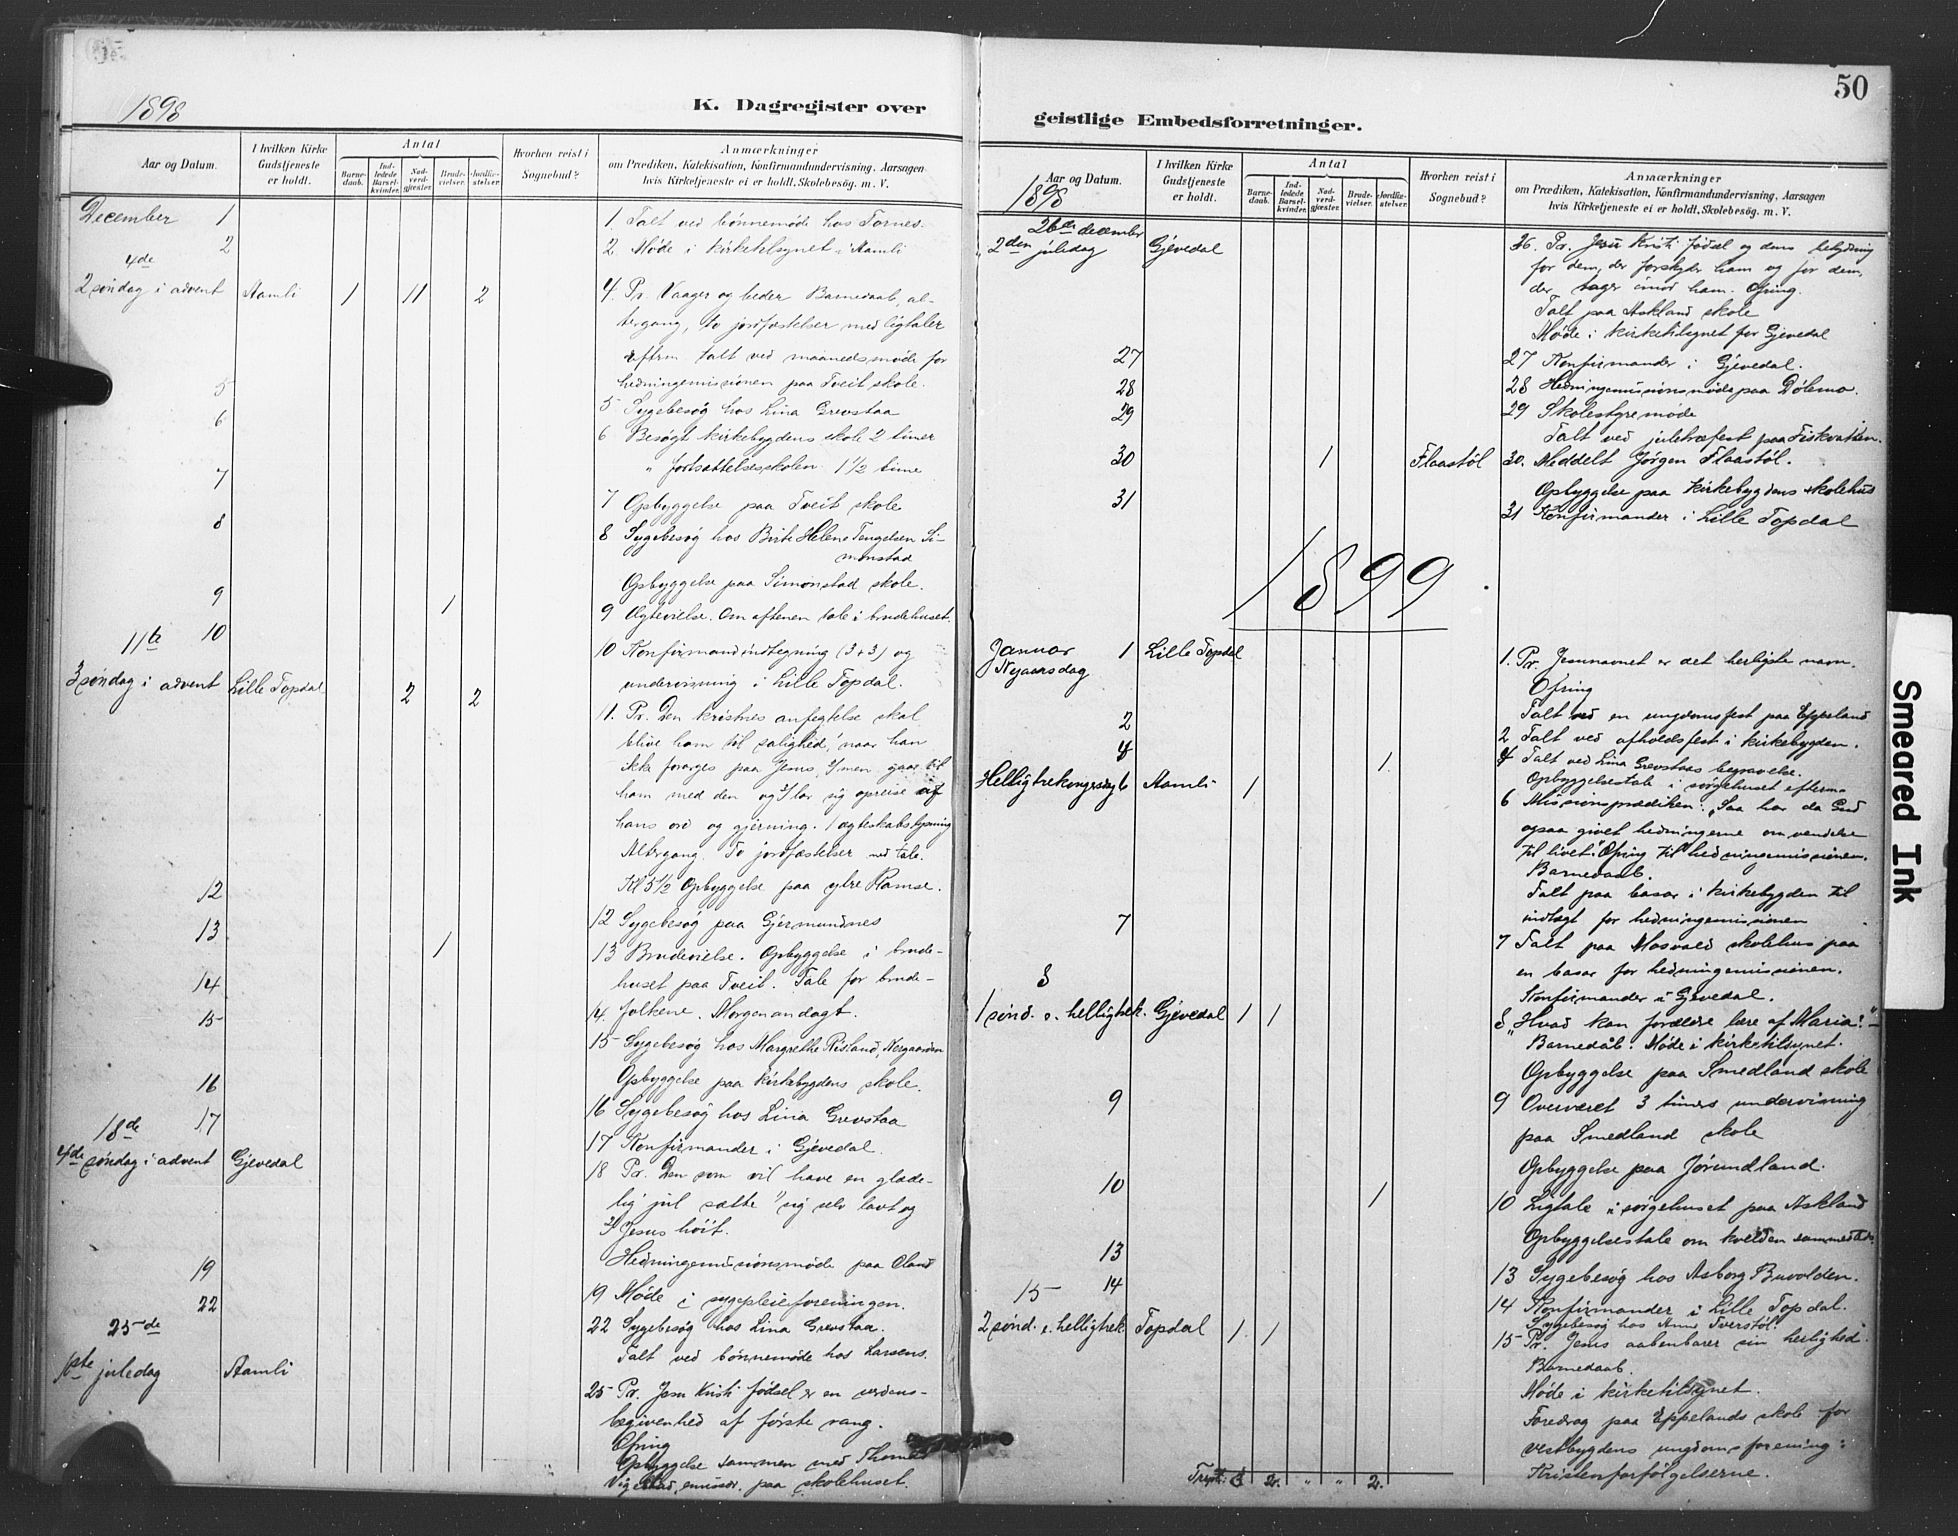 50
1898
K. Dagregister over
geistlige Embedsforretninger.
Aar og Datum.
I hvilken Kirke Gudstjeneste er holdt.
Antal
Barne-daab.
Ind-ledede Barsel-kvinder.
Nad-verd-gjæster.
Brude-vielser.
Jordfæ-stelser.
Hvorhen reist i Sognebud?
Anmærkninger
om Prædiken, Katekisation, Konfirmandundervisning, Aarsagen
hvis Kirketjeneste ei er holdt, Skolebesøg, m. V.
December 1
1. Talt ved bønnemøde hos Tornes.
2
2. Møde i kirketilsynet i Aamli
4de
2 søndag i advent Aamli 1 11 2
4. Pr. Vaager og beder Barnedaab, al-
tergang, to jordfæstelser med ligtaler
Efterm talt ved maanedsmøde for
hedningemissionen paa Tveit skole.
5
5 Sygebesøg hos Lina Grevstaa
6
6 Besøgt kirkebygdens skole 2 timer
" fortsættelsesskolen 1 1/2 time
7
7 Opbyggelse paa Tveit skole
8
8 Sygebesøg hos Birte Helene Tengelsen Si-
monstad
Opbyggelse paa Simonstad skole.
9 1
9 Ægtevielse. Om aftenen tale i brudehuset.
10
10 Konfirmandindtegning (3+3) og
undervisning i Lille Topdal.
11te
3 søndag i advent Lille Topdal 2 2
11. Pr. Den kristnes anfegtelse skal
blive ham til salighed, naar han
ikke forarges paa Jesus, men gaar til
ham med den og lar sig opreise af
hans ord og gjerning. 1 ægteskabslysning
Altergang. To jordfæstelser med tale.
Kl 5 1/2 Opbyggelse paa ytre Ramse.
12
12 Sygebesøg paa Gjermundnes
13 1
13 Brudevielse. Opbyggelse i brude-
huset paa Tveit. Tale for brude-
14
14. folkene. Morgenandagt.
15
15 Sygebesøg hos Margrethe Risland,
Opbyggelse paa kirkebygdens skole.
16
16 Sygebesøg hos Lina Grevstaa
17
17 Konfirmander i Gjevedal.
18de
4de søndag i advent Gjevedal
18 Pr. Den som vil have en glæde-
lig jul sætte 1) sig selv lavt og
2) Jesus høit.
Hedningemissionsmøde paa Oland
19
19 Møde i sygepleieforeningen.
22
22 Sygebesøg hos Lina Grevstaa.
Talt ved bønnemøde hos Larsens.
25de
1ste juledag Aamli
25 Pr. Jesu Kristi fødsel er en verdens-
begivenhed af første rang.
Ofring
Opbyggelse sammen med Thomas
Vigestad, emissær, paa skolehuset.
Aar og Datum.
1898
I hvilken Kirke Gudstjeneste er holdt.
Antal
Barne-daab.
Ind-ledede Barsel-kvinder.
Nad-verd-gjæster.
Brude-vielser.
Jordfæ-stelser.
Hvorhen reist i Sognebud?
Anmærkninger
om Prædiken, Katekisation, Konfirmandundervisning, Aarsagen
hvis Kirketjeneste ei er holdt, Skolebesøg, m. V.
26de december
2den juledag Gjevedal
26. Pr. Jesu Kristi fødsel og dens betydning
for dem, der forskyder ham og for dem,
der tager imod ham. Ofring.
Talt paa Askland skole
Møde i kirketilsynet for Gjevedal
27
27 Konfirmander i Gjevedal.
28
28 Hedningemissionsmøde paa Dölemo.
29
29 Skolestyremøde
Talt ved juletræfest paa Fiskvatten.
30 1 Flaastöl
30. Meddelt Jörgen Flaastöl.
Opbyggelse paa kirkebygdens skolehus
31
31 Konfirmander i Lille Topdal
1899
Januar 1 Lille Topdal
Nyaarsdag
1. Pr. Jesunavnet er det herligste navn.
Ofring
Talt ved en ungdomsfest paa Eppeland
2
2 Talt ved afholdsfest i kirkebygden.
4 1
4 Talt ved Lina Grevstaas begravelse.
Opbyggelsestale i sørgehuset efterm.
Helligtrekongersdag 6 Aamli 1
6 Missionsprædiken: "Saa har da Gud
ogsaa givet hedningerne omvendelse
til livet." Ofring til hedningemissionen.
Barnedaab.
Talt paa basar i kirkebygden til
indtægt for hedningemissionen
7
7 Talt paa Mosvald skolehus paa
en basar for hedningemissionen.
Konfirmander i Gjevedal.
8
1 sønd. e. helligtrek. Gjevedal 1 1
8 "Hvad kan forældre lære af Maria?"
Barnedåb. Møde i kirketilsynet.
Opbyggelse paa Smedland skole
9
9 Overværet 3 timers undervisning
paa Smedland skole
Opbyggelse paa Jørundland.
10 1
10 Ligtale i sørgehuset paa Askland
Opbyggelsestale om kvelden sammesteds.
13
13 Sygebesøg hos Asborg Buvolden.
14
14 Konfirmander i Lille Topdal.
Sygebesøg hos Anne Tverstöl.
15
2 sønd. e. helligtrek. Topdal 1 1
15 Pr. Jesus aabenbarer sin herlighed.
Barnedaab.
Møde i kirketilsynet.
Foredrag paa Eppelands skole for
vestbygdens ungdomsforening:
Kristenforfølgelserne.
3 2. " " 2.
Smeared Ink